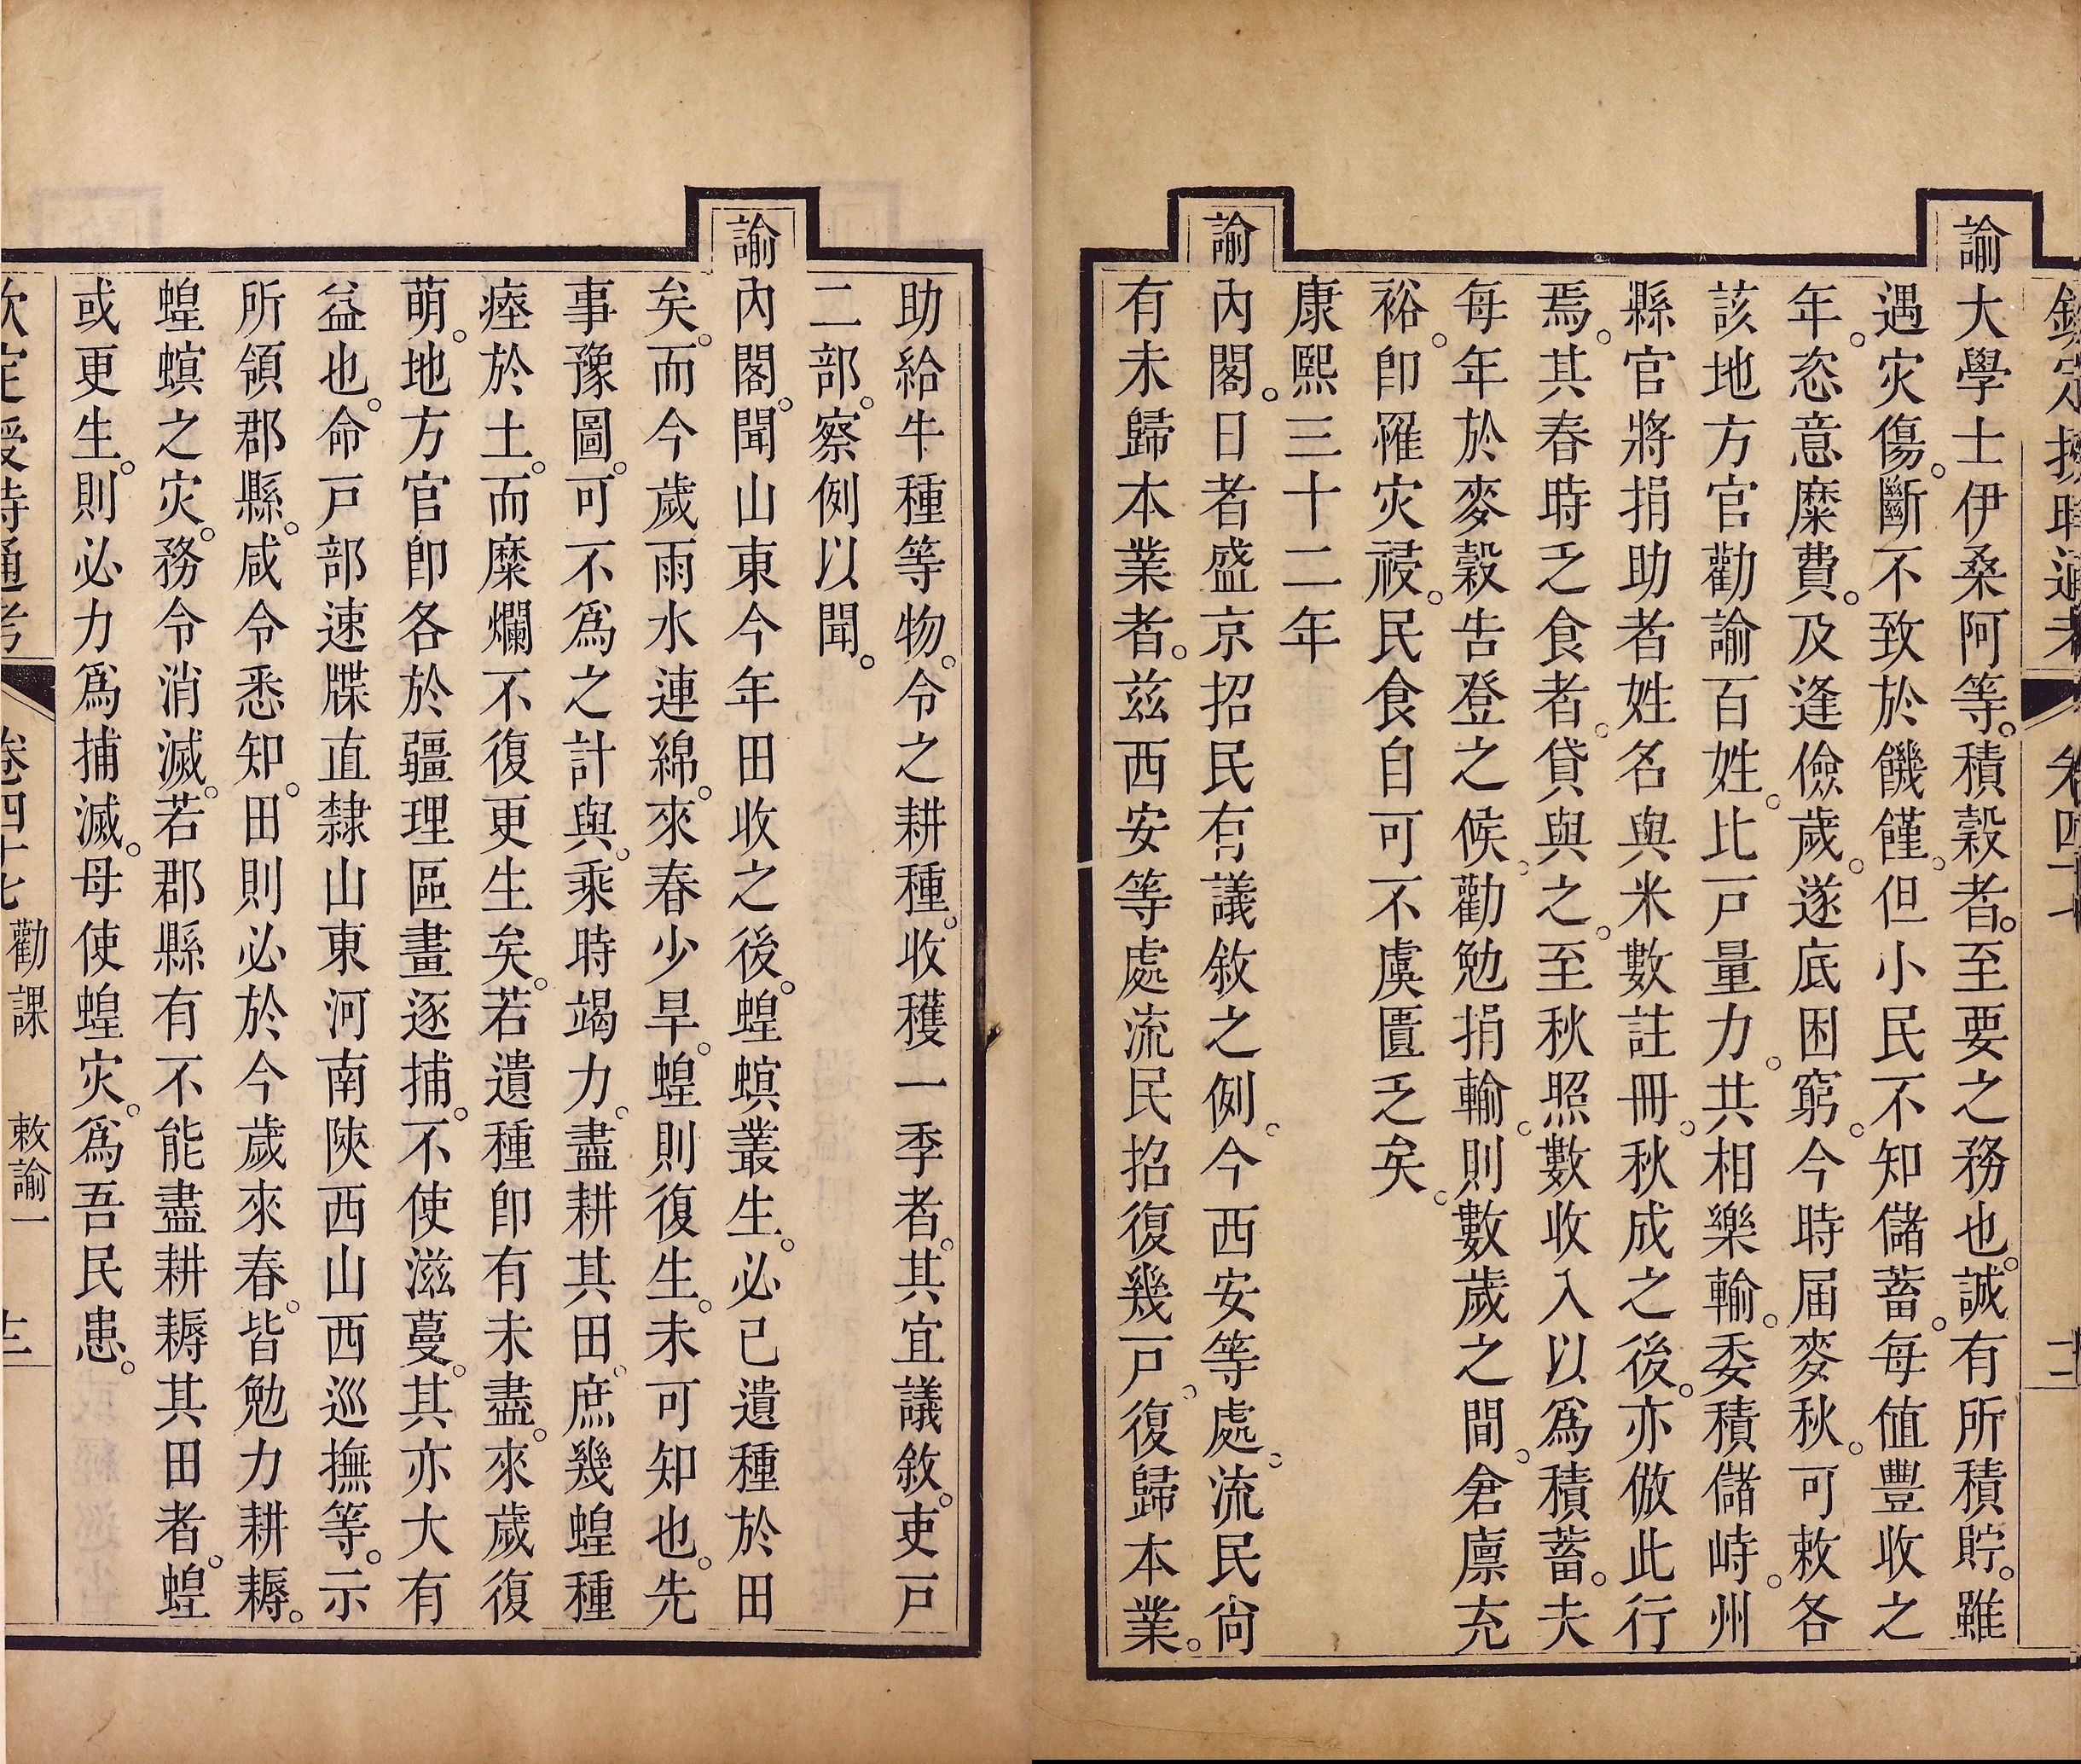 欽定授時通考 卷四十七 十二
諭大學士伊桑阿等。積穀者。至要之務也。誠有所積貯。雖
遇灾傷。斷不致於饑饉。但小民不知儲蓄。每値豐收之
年。恣意糜費。及逢儉歲。遂底困窮。今時届麥秋。可敕各
該地方官勸諭百姓。比戸量力。共相樂輸。委積儲峙。州
縣官將捐助者姓名與米數註冊。秋成之後。亦倣此行
焉。其春時乏食者。貸與之。至秋照數收入以爲積蓄。夫
每年於麥穀告登之候。勸勉捐輸。則數歲之間。倉廪充
裕。卽罹灾祲。民食自可不虞匱乏矣。
康熙三十二年
諭內閣。日者盛京招民有議敘之例。今西安等處。流民尙
有未歸本業者。茲西安等處流民招復幾戸。復歸本業。
助給牛種等物。令之耕種。收穫一季者。其宜議敘。吏戸
二部。察例以聞。
諭內閣。聞山東今年田收之後。蝗螟叢生。必已遺種於田
矣。而今歲雨水連綿。來春少旱。蝗則復生。未可知也。先
事豫圖。可不爲之計與。乘時竭力。盡耕其田。庶幾蝗種
瘞於土。而糜爛不復更生矣。若遺種卽有未盡。來歲復
萌。地方官卽各於疆理區畫逐捕。不使滋蔓。其亦大有
益也。命戸部速牒直隸山東河南陝西山西巡撫等。示
所領郡縣。咸令悉知。田則必於今歲來春。皆勉力耕耨。
蝗螟之灾。務令消滅。若郡縣有不能盡耕耨其田者。蝗
或更生。則必力爲捕滅。毋使蝗灾。爲吾民患。
欽定授時通考 卷四十七 勸課 敕諭一 十三